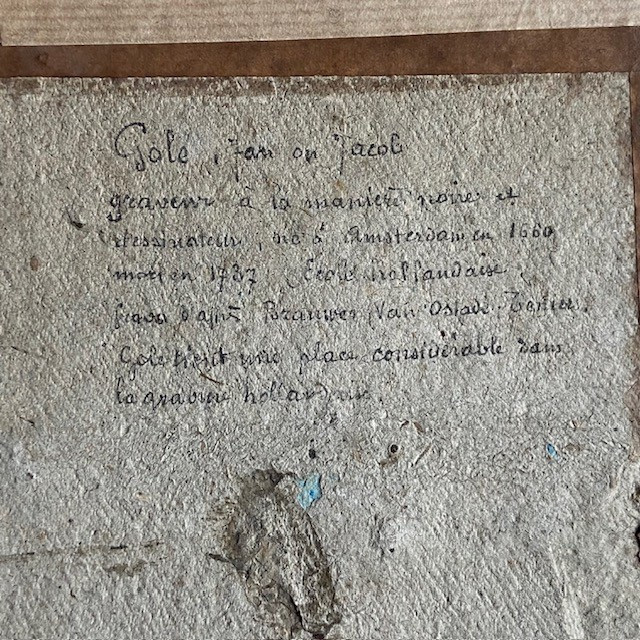 Gole, Jan ou Jacob
graveur à la manière noire et
dessinateur, né à Amsterdam en 1660
mort en 1737 École hollandaise.
grava d'après Brauwer, Van Ostade, Teniers.
Gole tient une place considérable dans
la gravure hollandaise.